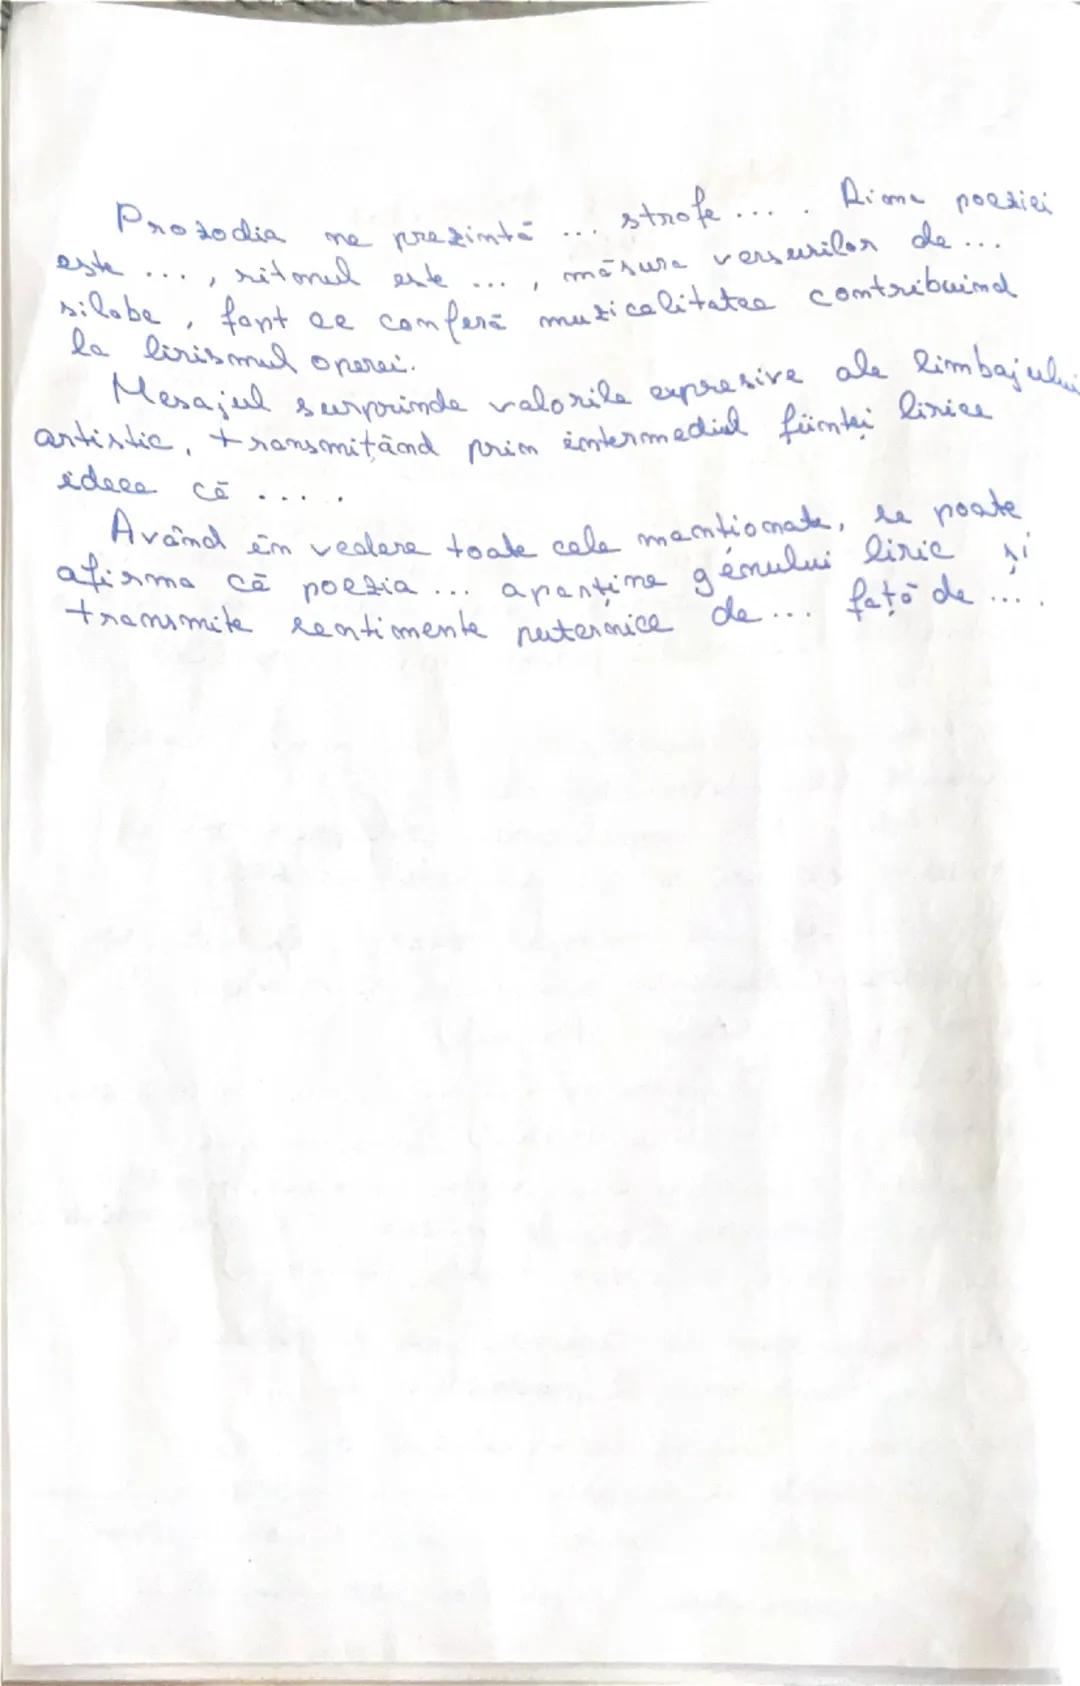 Prozodia ne prezintă ... strofe .... Rima poeziei
este ..., ritmul este ..., măsura versurilor de ...
silabe, fapt ce conferă muzicalitatea contribuind
la lirismul operei.
Mesajul surprinde valorile expresive ale limbajului
artistic, transmițând prin intermediul ființei lirice
ideea că ....
Având în vedere toate cele menționate, se poate
afirma că poezia ... aparține genului liric și
transmite sentimente puternice de ... față de ....